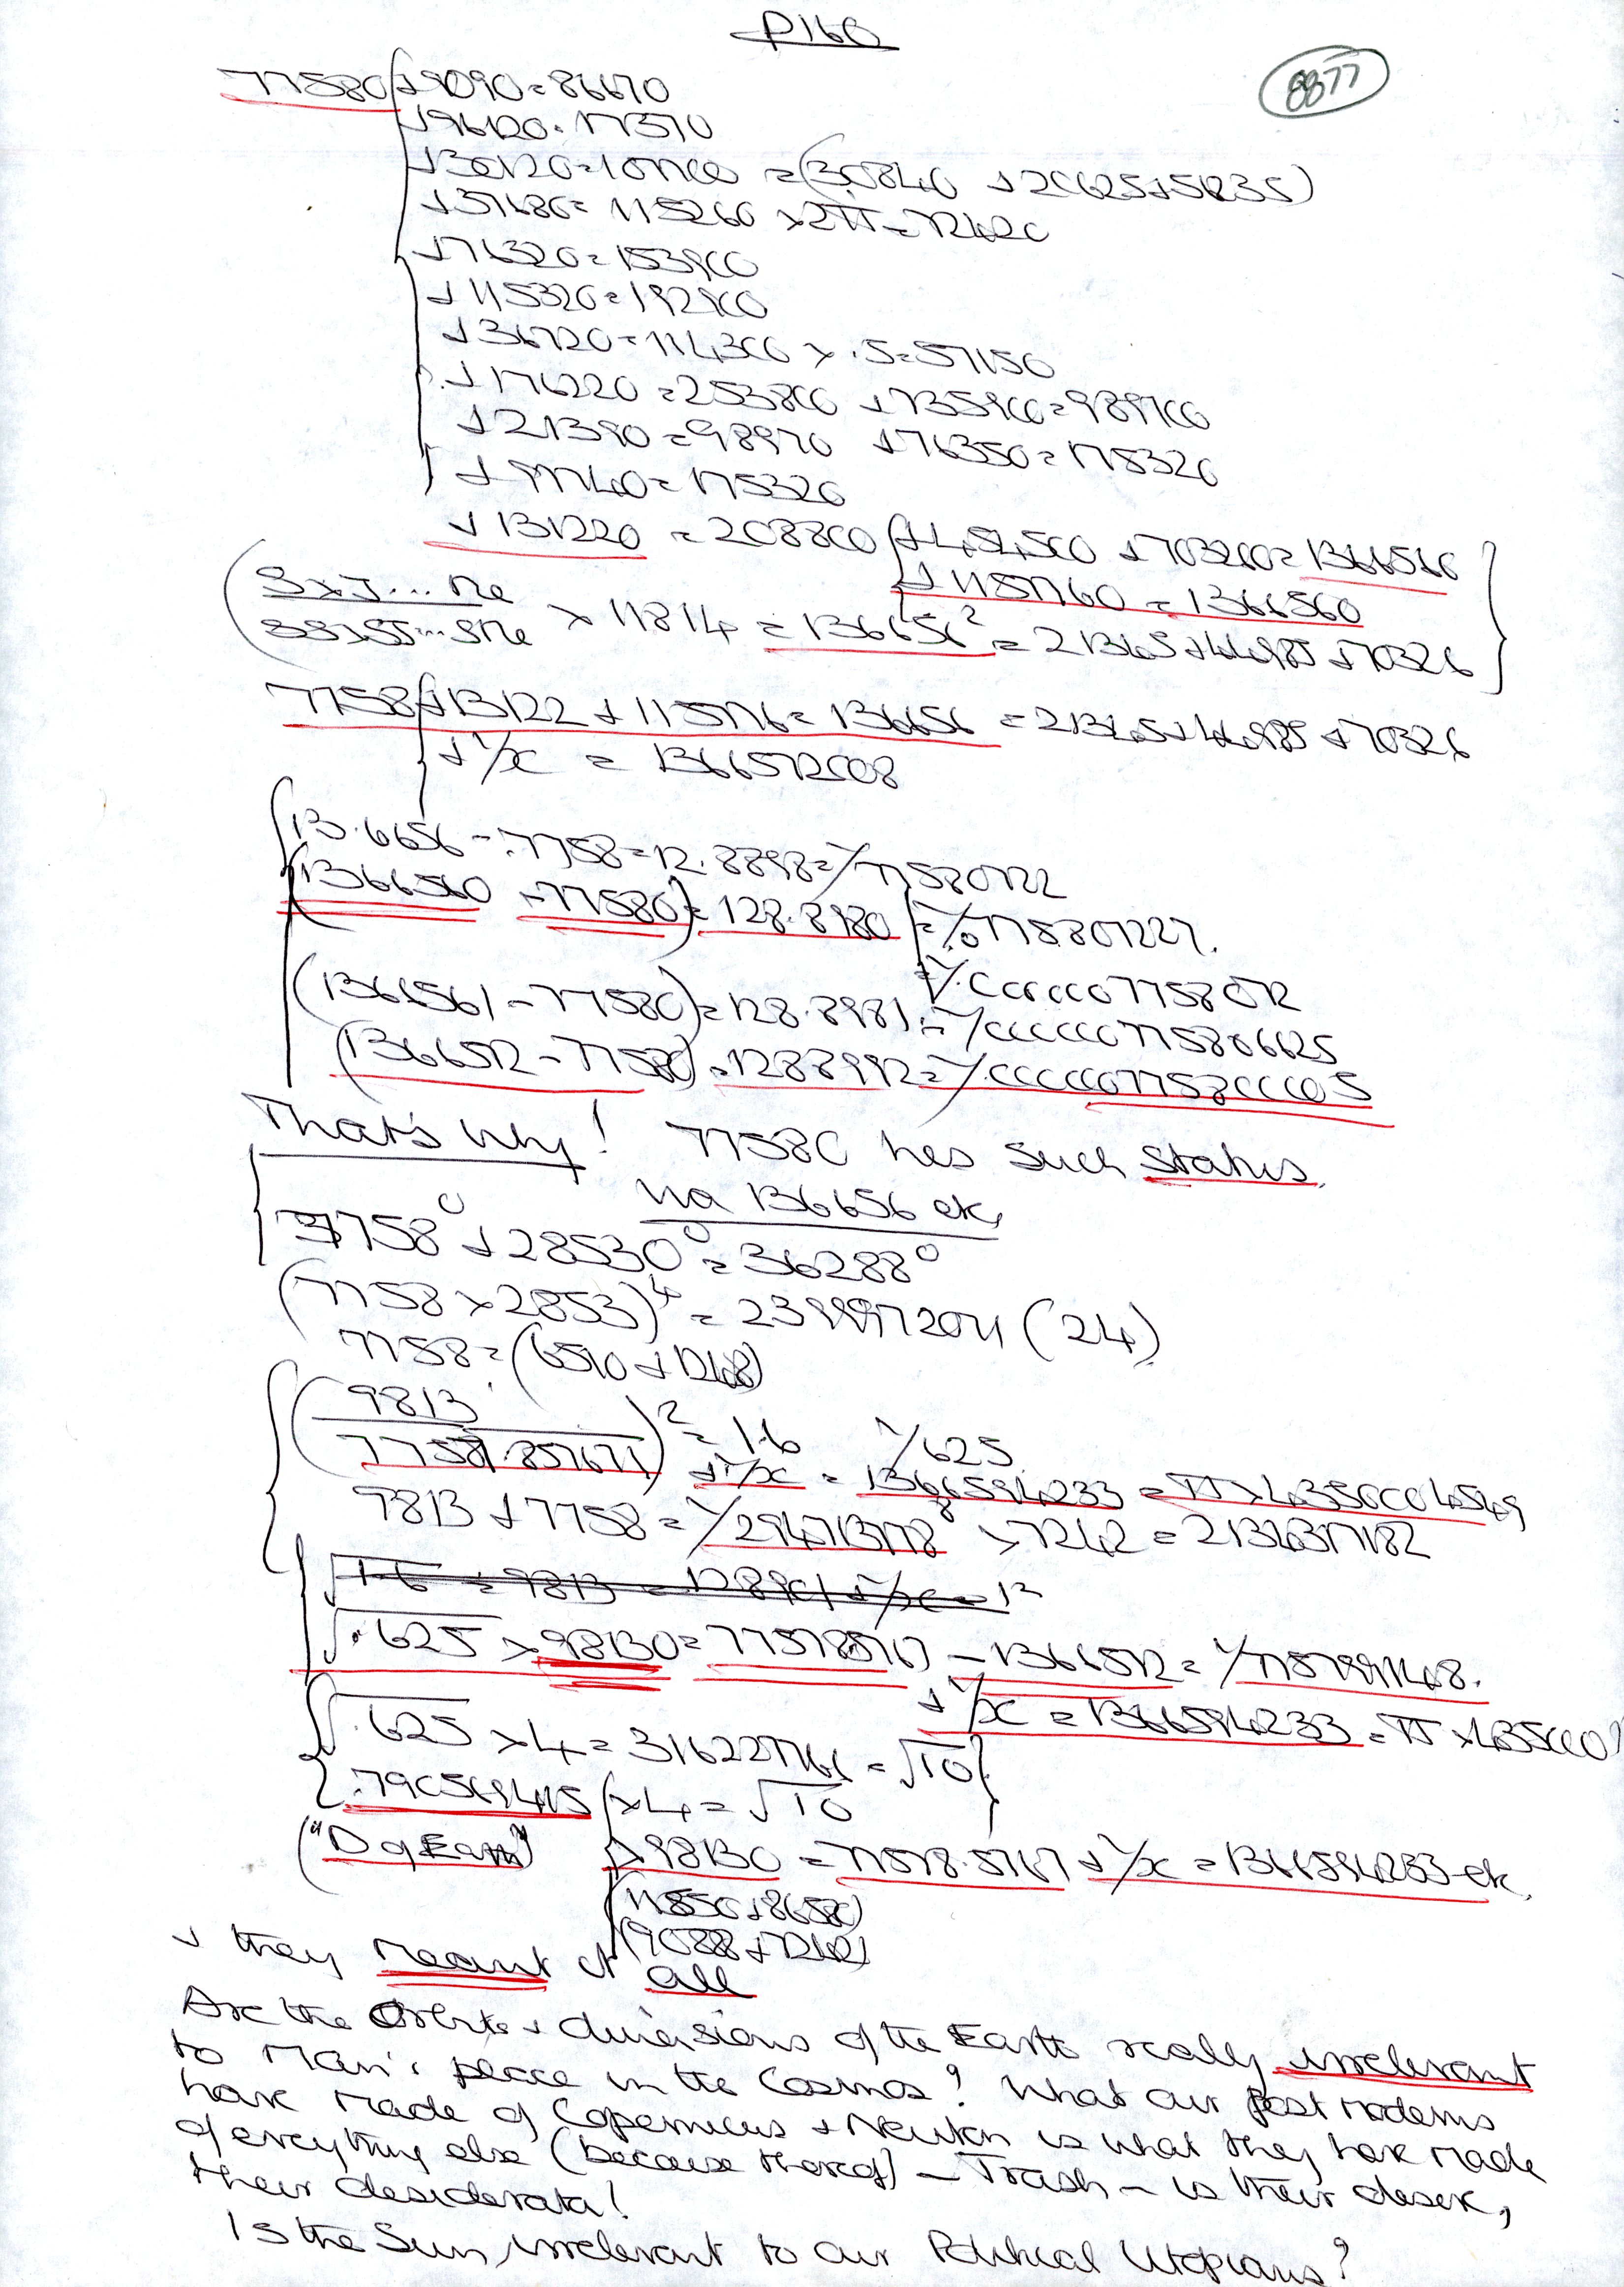 P166
8877
77580 + 9090 = 86670
+ 96120 = 17370
+ 30120 = 107700 = (30840 + 20625 + 51235)
+ 37680 = 115260 × 2π = 72420
+ 76320 = 153900
+ 115320 = 192900
+ 36720 = 114300 × .5 = 57150
+ 176220 = 253800 + 735900 = 989700
+ 21390 = 98970 + 76350 = 175320
+ 97740 = 175320
+ 131220 = 208800 + 454500 + 703260 = 1366560
+ 1157760 = 1366560
× 11814 = 136656² = 21345 + 44985 + 70326
7758 + 13122 + 115776 = 136656 = 21345 + 44985 + 70326
+ 1/x = 1366572008
13.6656 - .7758 = 12.8898 = 1/77580722
(1366560 - 77580) = 128.8980 = 1/.0775801227.
= 1/.0000007758072
(1366561 - 77580) = 128.8981 = 1/000000775806625
(1366572 - 77580) = 1288992 = 1/.0000007758000005
That's why! 77580 has such status.
via 136656 etc,
7758° + 28530° = 36288°
(7758 × 2853)⁴ = 2399972071 (24)
7758 = (6510 + 1248)
(9813 / 7757.857671)² = 1.6 1/625
+ 1/x = 1366594233 = π × 4350004549
9813 + 7758 = 1/294713778 × 7242 = 2134317182
√1.6 = 9813 = 128901 + 1/x = 1²
√.625 × 98130 = 775785767 - 1366572 = 1/7757991148.
+ 1/x = 1366594233 = π × 435000
√.625 × 4 = 3162277661 = √10
.790569415 × 4 = √10
("D of Earth") × 98130 = 77578.5767 + 1/x = 1366594233 etc,
(11850 + 8658)
(9088 + 7242)
+ they meant it all
Are the Orbits + dimensions of the Earth really irrelevant
to Man's place in the Cosmos? What our Post moderns
have made of Copernicus + Newton is what they have made
of everything else (because thereof) – Trash – is their desert,
their desiderata!
Is the Sun irrelevant to our Political Utopians?